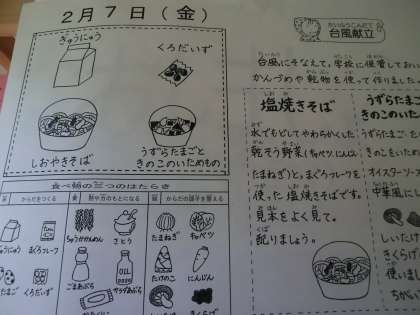 2月7日(金)
ぎゅうにゅう
くろだいず
しおやきそば
うずらたまごと
きのこのいためもの
食べ物の三つのはたらき
からだをつくる
熱や力のもとになる
からだの調子を整える
ぎゅうにゅう
まぐろフレーク
ちゅうかめん
さとう
たまねぎ
キャベツ
たまご
くろだいず
ごまあぶら
サラダあぶら
たけのこ
にんじん
きくらげ
台風献立
台風にそなえて、学校に保管してお
かんづめや乾物を使って作りました
塩焼きそば
水でもどしてやわらかくした
乾そう野菜(キャベツ、にんじん
たまねぎ)と、まぐろフレークを
使った塩焼きそばです。
見本をよく見て、
配りましょう。
うずらたまご
きのこのい
うずらたまご
きのこをいた
オイスターソース
中華風にし
しいたけ
きくらげ
使いまし
ちがい